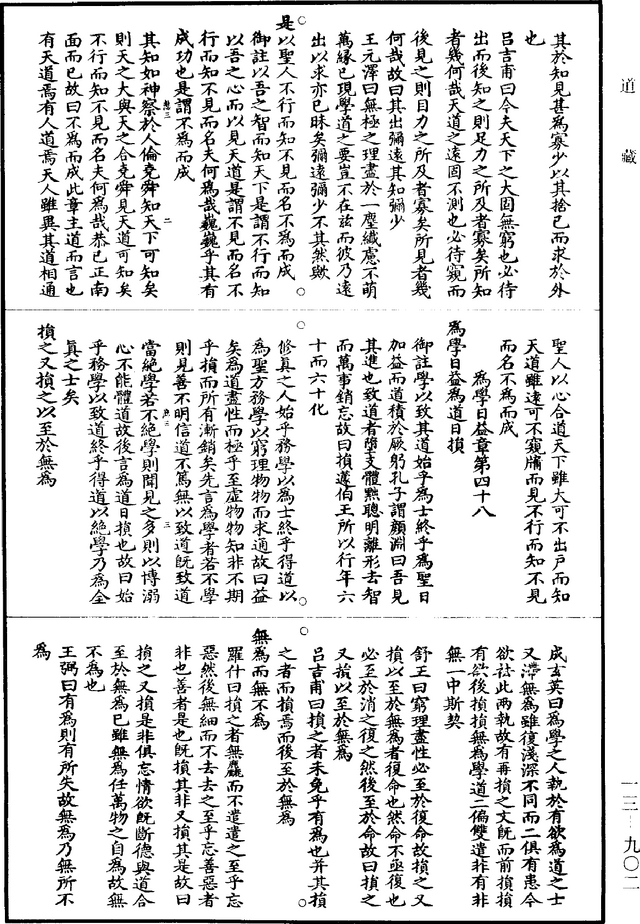 道藏
其於知見甚為寡少以其捨已而求於外
也
呂吉甫曰今夫天下之大固無窮也必待
出而後知之則足力之所及者寡矣所知
者幾何哉天道之遠固不測也必待窺而
後見之則目力之所及者寡矣所見者幾
何哉故曰其出彌遠其知彌少
王元澤曰無極之理盡於一塵纖慮不萌
萬緣已現學道之要豈不在茲而彼乃遠
出以求亦已昧矣彌遠彌少不其然歟
是以聖人不行而知不見而名不為而成
御註以吾之智而知天下是謂不行而知
以吾之心而以見天道是謂不見而名不
行而知不見而名夫何為哉巍巍乎其有
成功也是謂不為而成
其知如神察於人倫堯舜知天下可知矣
則天之大與天之合堯舜見天道可知矣
不行而知不見而名夫何為哉恭已正南
面而已故曰不為而成此章主道而言也
有天道焉有人道焉天人雖異其道相通
聖人以心合道天下雖大可不出戶而知
天道雖遠可不窺牖而見不行而知不見
而名不為而成
為學日益章第四十八
為學日益為道日損
御註學以致其道始乎為士終乎為聖日
加益而道積於厥躬孔子謂顏淵曰吾見
其進也致道者墮支體黜聰明離形去智
而萬事銷忘故曰損蘧伯王所以行年六
十而六十化
修真之人始乎務學以為士終乎得道以
為聖方務學以窮理物物而求通故曰益
矣為道盡性而極乎至虛物物知非不期
乎損而所有漸銷矣先言為學者若不學
則見善不明信道不篤無以致道既致道
當絕學若不絕學則聞見之多則以博溺
心不能體道故後言為道日損也故曰始
乎務學以致道終乎得道以絕學乃為全
真之士矣
損之又損之以至於無為
成玄英曰為學之人執於有欲為道之士
又滯無為雖復淺深不同而二俱有患今
欲祛此兩執故有再損之文既而前損損
有欲後損損無為學道二偏雙遣非有非
無一中斯契
舒王曰窮理盡性必至於復命故損之又
損以至於無為者復命也然命不亟復也
必至於消之復之然後至於命故曰損之
又損以至於無為
呂吉甫曰損之者未免乎有為也并其損
之者而損焉而後至於無為
無為而無不為
羅什曰損之者無麤而不遣遣之至乎忘
惡然後無細而不去去之至乎忘善惡者
非也善者是也既損其非又損其是故曰
損之又損是非俱忘情欲既斷德與道合
至於無為已雖無為任萬物之自為故無
不為也
王弼曰有為則有所失故無為乃無所不
為
一三—九〇二